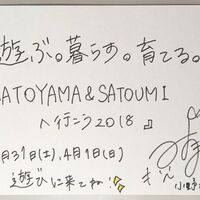 遊ぶ。暮らす。育てる。
ATOYAMA & SATOUMI
へ行こう2018』
月31日(土),4月1日(日)
遊びに来てね!!